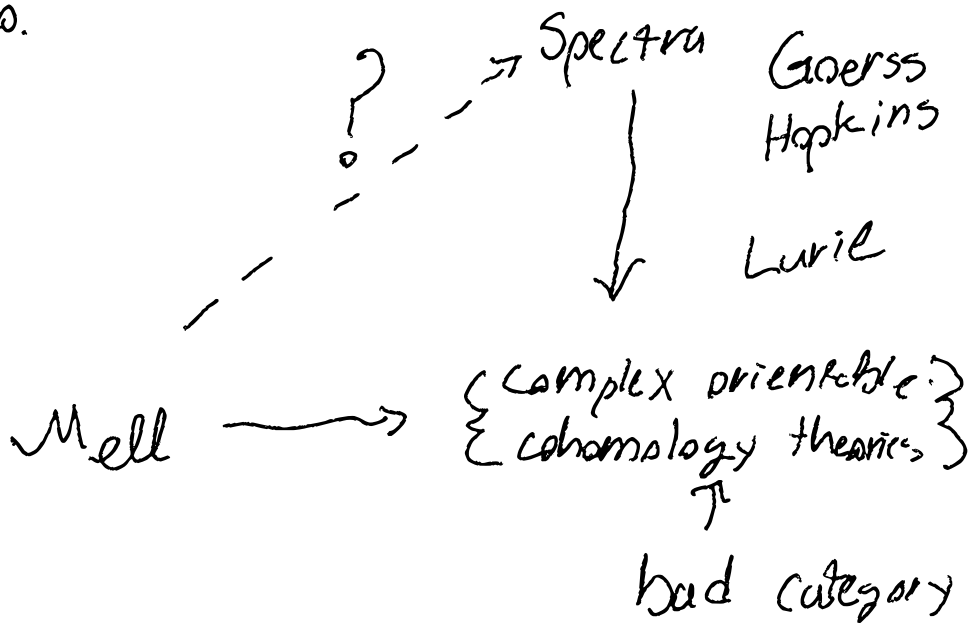 o.
?
Spectra
Goerss
Hopkins
Lurie
Mell
{ complex orientable }
{ cohomology theories }
bad category